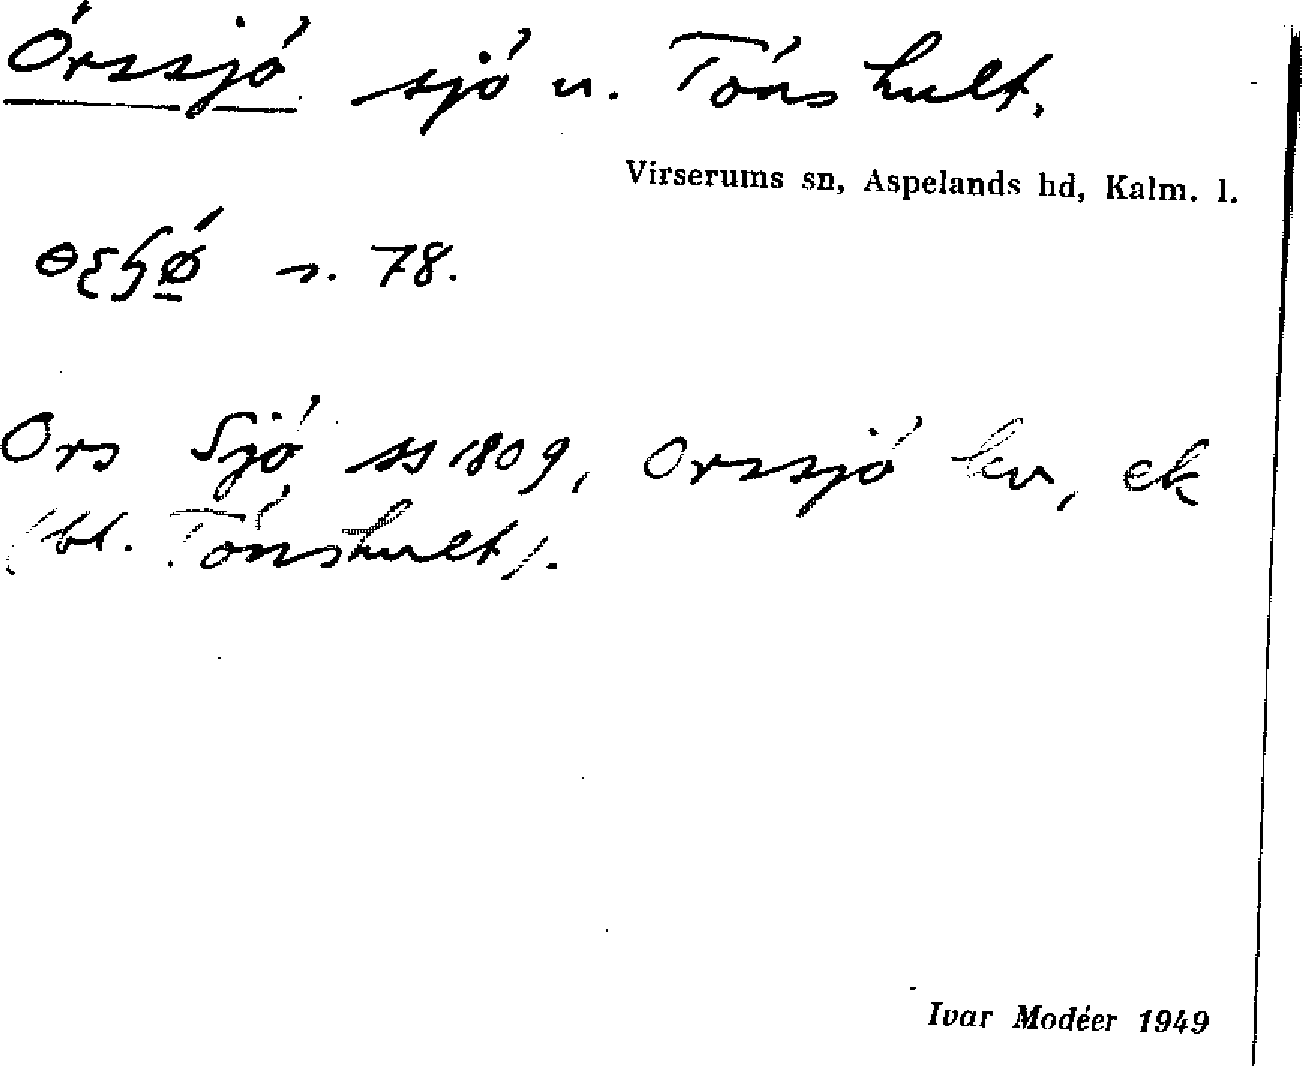 Örssjö sjö u. Tönshult.
Virserums sn, Aspelands hd, Kalm. l.
s. 78.
Örs Sjö ss 1809, Örssjö kv, ek
(bl. Tönshult).
Ivar Modéer 1949